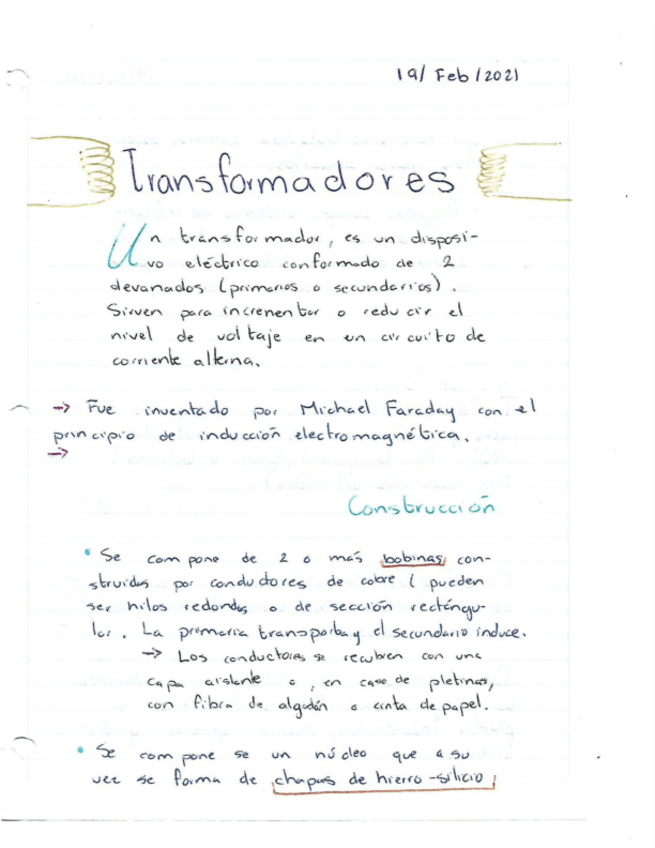 19/ Feb /2021
Transformadores
Un transformador, es un disposi-
vo eléctrico conformado de 2
devanados (primarios o secundarios).
Sirven para incrementar o reducir el
nivel de voltaje en un circuito de
corriente alterna.
→ Fue inventado por Michael Faraday con el
principio de inducción electromagnética.
→
Construcción
• Se compone de 2 o más bobinas con-
struidas por conductores de cobre ( pueden
ser hilos redondos o de sección rectángu-
lar. La primaria transporta y el secundario induce.
→ Los conductores se recubren con una
capa aislante o, en caso de pletinas,
con fibra de algodón o cinta de papel.
• Se compone se un núcleo que a su
vez se forma de chapas de hierro-silicio,